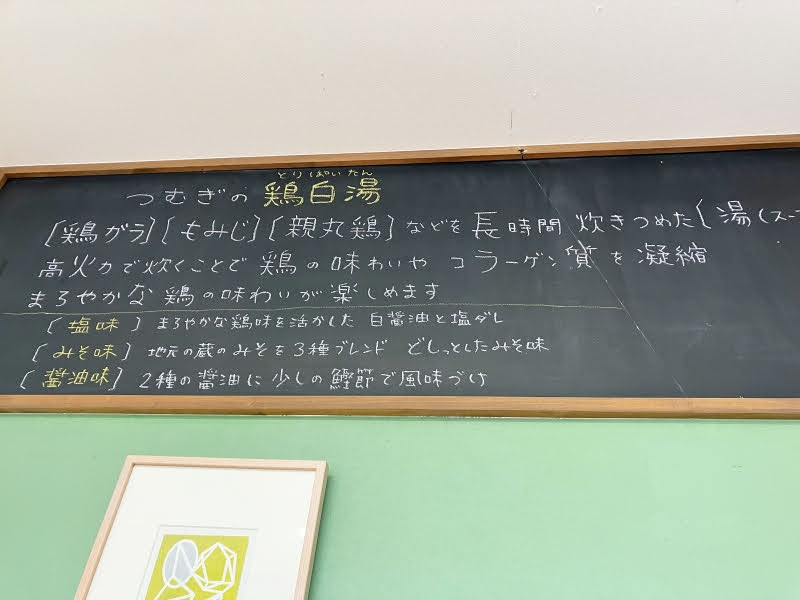 とりぱいたん
つむぎの 鶏白湯
[鶏ガラ] [もみじ] [親丸鶏] などを 長時間 炊きつめた [湯(スー
高火力で炊くことで 鶏の味わいや コラーゲン質を凝縮
まろやかな 鶏の味わいが楽しめます
[塩味] まろやかな鶏味を活かした 白醤油と塩ダレ
[みそ味] 地元の蔵のみそを3種ブレンド どしっとしたみそ味
[醤油味] 2種の醤油に少しの鰹節で風味づけ